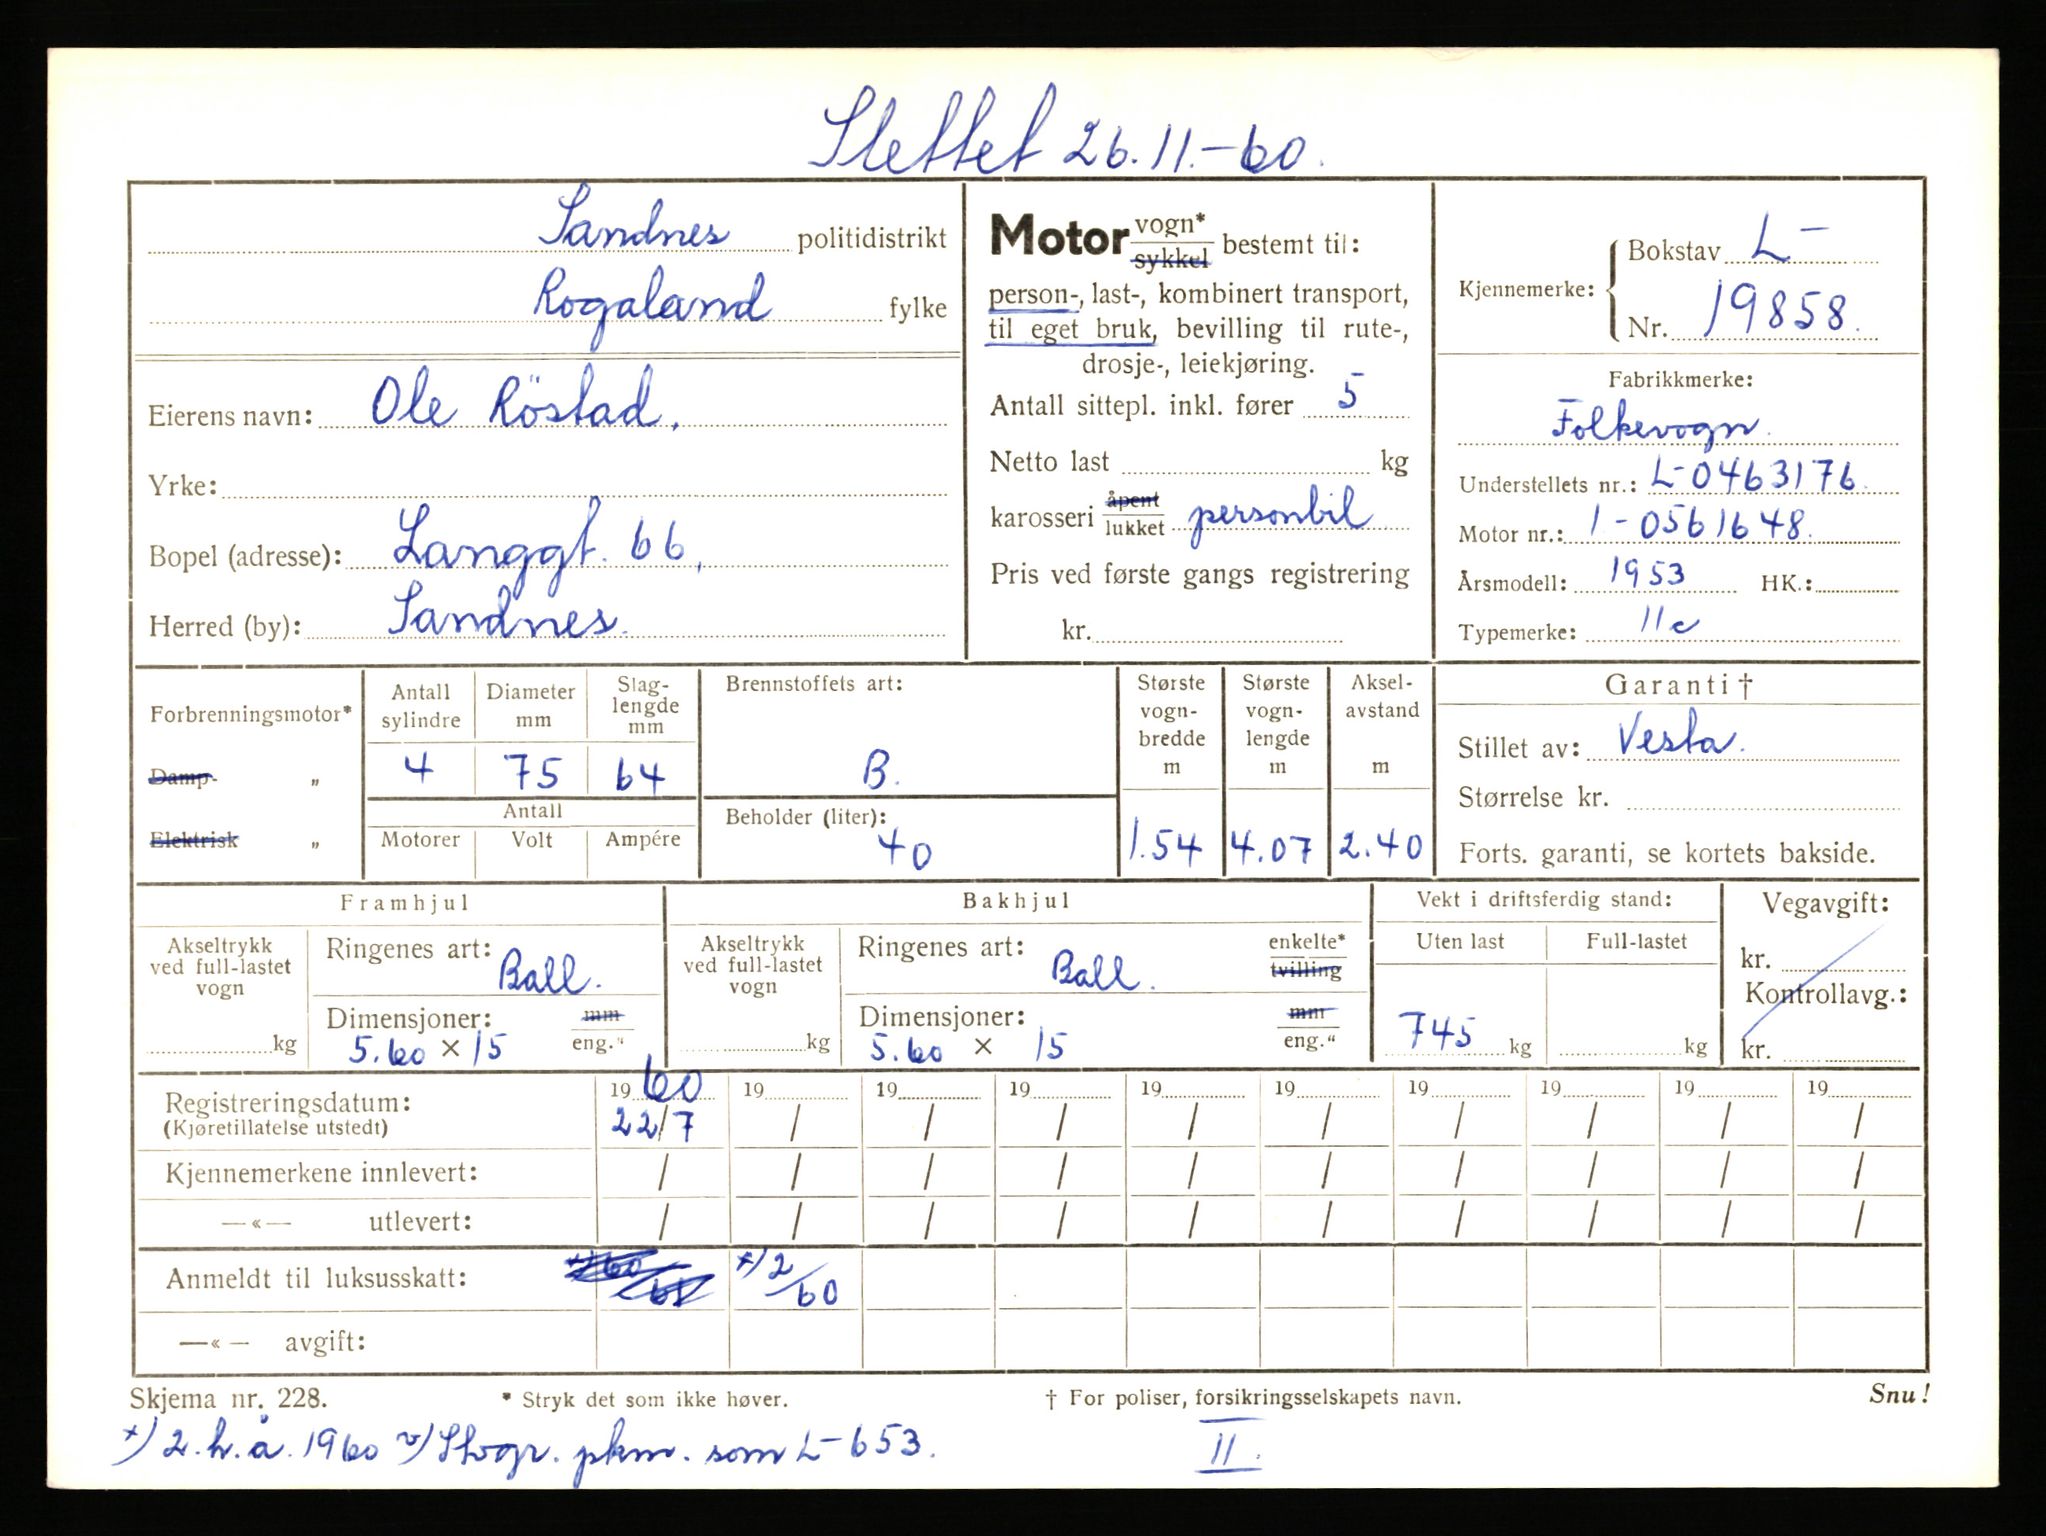 Slettet 26.11.-60.
Sandnes politidistrikt
Rogaland fylke
Eierens navn: Ole Röstad.
Yrke:
Bopel (adresse): Langgt. 66,
Herred (by): Sandnes.
Motor vogn* sykkel bestemt til:
person-, last-, kombinert transport,
til eget bruk, bevilling til rute-,
drosje-, leiekjøring.
Antall sittepl. inkl. fører 5
Netto last kg
karosseri åpent lukket personbil
Pris ved første gangs registrering
kr.
Kjennemerke: Bokstav L-
Nr. 19858.
Fabrikkmerke:
Folkevogn.
Understellets nr.: L-0463176.
Motor nr.: 1-0561648.
Årsmodell: 1953 HK.:
Typemerke: 11c
Forbrenningsmotor*
Damp- „
Elektrisk „
Antall sylindre Diameter mm Slag-lengde mm
4 75 64
Antall
Motorer Volt Ampére
Brennstoffets art:
B.
Beholder (liter):
40
Største vogn-bredde m Største vogn-lengde m Aksel-avstand m
1.54 4.07 2.40
Garanti †
Stillet av: Vesta.
Størrelse kr.
Forts. garanti, se kortets bakside.
Framhjul
Akseltrykk ved full-lastet vogn
kg
Ringenes art: Ball.
Dimensjoner: mm
5.60 × 15 eng."
Bakhjul
Akseltrykk ved full-lastet vogn
kg
Ringenes art: Ball. enkelte* tvilling
Dimensjoner: mm
5.60 × 15 eng."
Vekt i driftsferdig stand:
Uten last Full-lastet
745 kg kg
Vegavgift:
kr.
Kontrollavg.:
kr.
Registreringsdatum: 1960 19 19 19 19 19 19 19 19 19
(Kjøretillatelse utstedt) 22/7 / / / / / / / / /
Kjennemerkene innlevert: / / / / / / / / / /
—«— utlevert: / / / / / / / / / /
Anmeldt til luksusskatt: x) 2/60
—«— avgift:
Skjema nr. 228. * Stryk det som ikke høver. † For poliser, forsikringsselskapets navn. Snu!
x) 2.h.å. 1960 pkm. som L-653.
II.